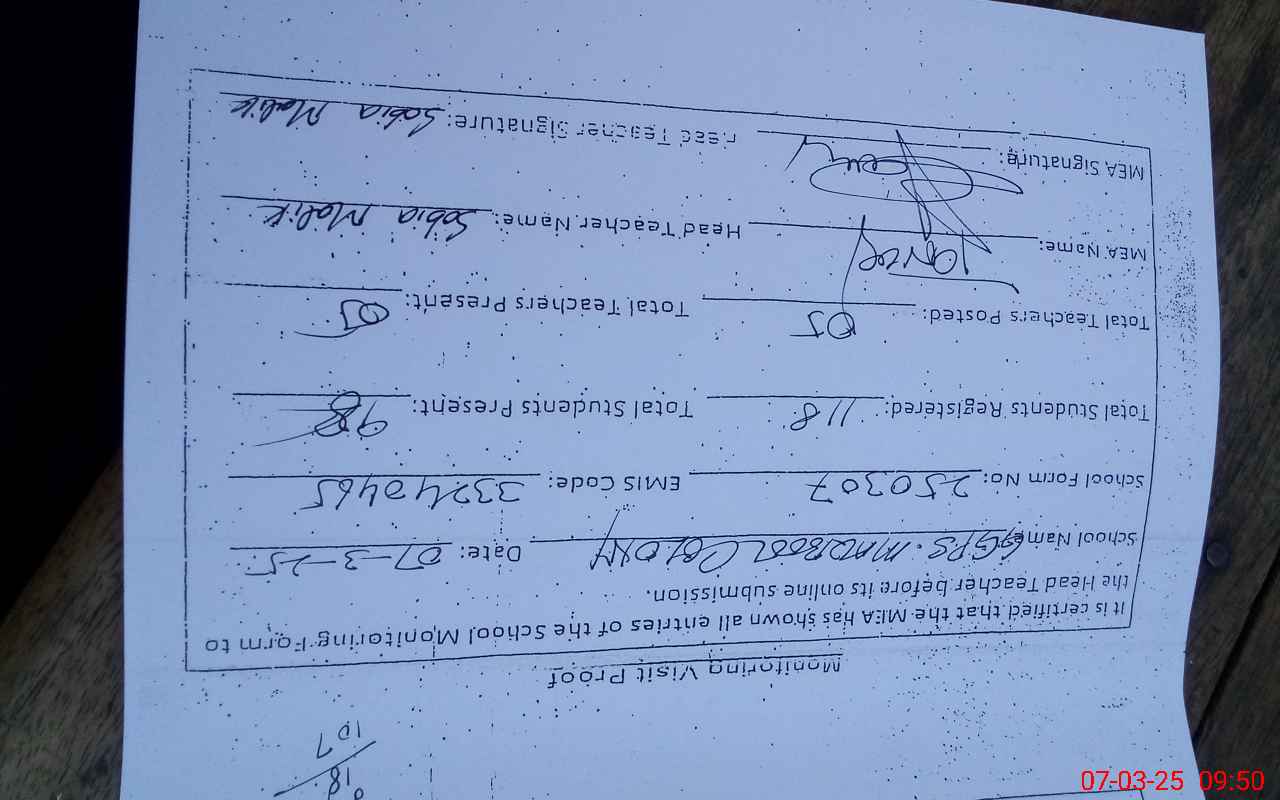 18
107
Monitoring Visit Proof
It is certified that the MEA has shown all entries of the School Monitoring Form to
the Head Teacher before its online submission.
School Name: GGPS. Colony Date: 07-3-25
School Form No: 250307 EMIS Code: 33240465
Total Students Registered: 118 Total Students Present: 98
Total Teachers Posted: 05 Total Teachers Present: 05
MEA Name: Head Teacher Name: Sobia Malik
MEA Signature: Head Teacher Signature: Sobia Malik
07-03-25 09:50